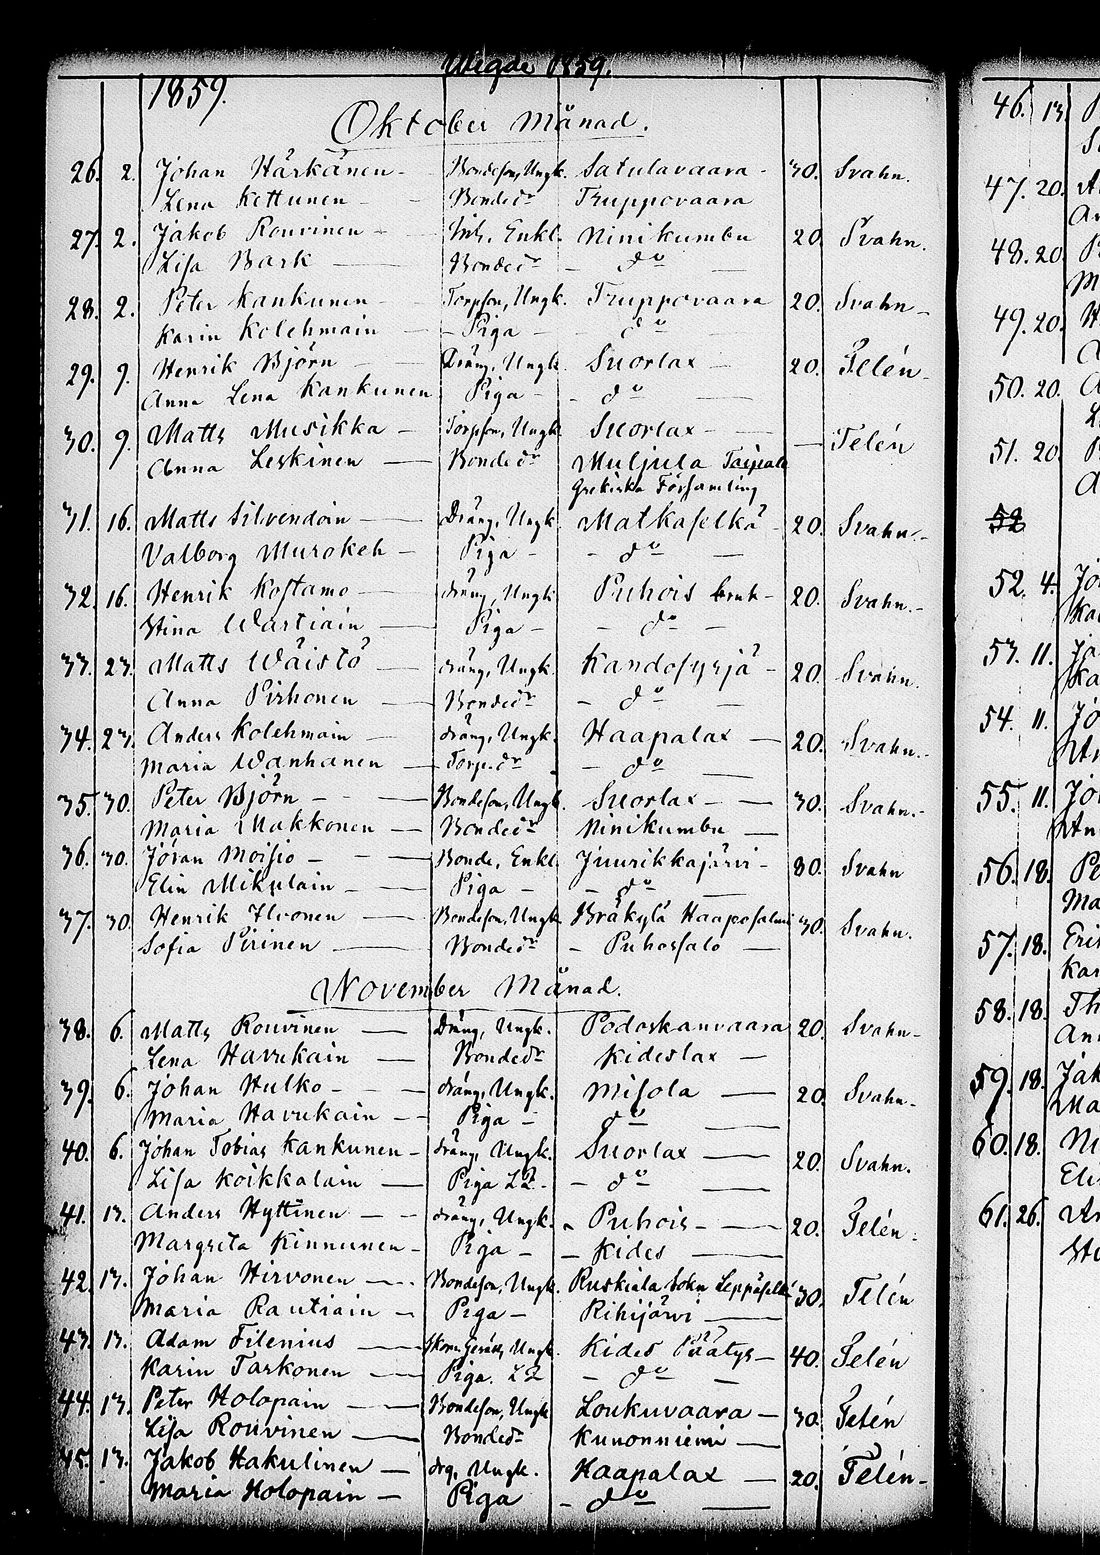 Wigde 1859.
1859.
Oktober Månad.
26. 2. Johan Härkänen - Bondeson, Ungk. Satulavaara - 30. Svahn.
Lena Kettunen - Bondedr Truppovaara
27. 2. Jakob Rouvinen - Inh. Enkl. Ninikumbu 20. Svahn.
Lisa Bark — Bondedr - do —
28. 2. Peter Kankunen - Torpson, Ungk. Truppovaara 20. Svahn -
Karin Kolehmain — Piga - do -
29. 9. Henrik Björn — Dräng, Ungk. Suorlax — 20. Telén -
Anna Lena Kankunen Piga - - do —
30. 9. Matts Musikka - Torpson, Ungk. Suorlax - — — Telén
Anna Leskinen — Bondedr Muljula Taipale
Grekiska Församling
31. 16. Matts Silvendoin — Dräng, Ungk. Matkaselkä - 20. Svahn -
Valborg Murokeh - Piga - - do —
32. 16. Henrik Kostamo - dräng, Ungk. Puhois bruk - 20. Svahn. -
Stina Wartiain — Piga - - do —
33. 23. Matts Wäistö — dräng, Ungk. Kandosyrjä - 20. Svahn.
Anna Pirhonen — Bondedr - do —
34. 23. Anders Kolehmain — dräng, Ungk. Haapalax — 20. Svahn. -
Maria Wanhanen — Torp.dr - do —
35. 30. Peter Björn - — Bondeson, Ungk. Suorlax - — 30. Svahn. -
Maria Makkonen — Bondedr Ninikumbu —
36. 30. Jöran Moisio - — Bonde, Enkl. Juurikkajärvi - 30. Svahn
Elin Mikulain - — Piga - - do —
37. 30. Henrik Ilvonen — Bondeson, Ungk. Bräkylä Haaposalmi 30. Svahn.
Sofia Pirinen — Bondedr - Puhossalo —
November Månad.
38. 6. Matts Rouvinen — Dräng, Ungk. Podoskanvaara 20. Svahn -
Lena Havukain — Bondedr Kideslax —
39. 6. Johan Hulko - — dräng, Ungk. Misola — 20. Svahn -
Maria Havukain — Piga - do —
40. 6. Johan Tobias Kankunen - dräng, Ungk. Suorlax — 20. Svahn.
Lisa Koikkalain — Piga L2 - - do —
41. 13. Anders Hyttinen - - dräng, Ungk. Puhois - — 20. Telén -
Margreta Kinnunen - Piga - - Kides —
42. 13. Johan Hirvonen — Bondeson, Ungk. Ruskiala Sokn Leppäselkä 30. Telén
Maria Rautiain — Piga - Rihijärvi —
43. 13. Adam Filenius — Skom. Gesäll, Ungk. Kides Päätys - 40. Telén
Karin Tarkonen — Piga. L2 - do —
44. 13. Peter Holopain — Bondeson, Ungk. Loukuvaara — 30. Telén
Lisa Rouvinen — Bondedr Kunonniemi —
45. 13. Jakob Hakulinen — drg, Ungk. Haapalax — 20. Telén -
Maria Holopain — Piga - do —
46. 13.
47. 20.
48. 20.
49. 20.
50. 20.
51. 20.
52
52. 4.
53. 11.
54. 11.
55. 11.
56. 18.
57. 18.
58. 18.
59. 18.
60. 18.
61. 26.